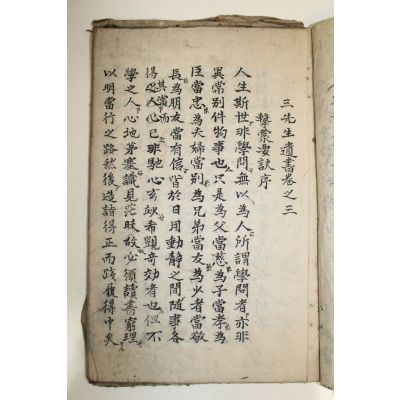 三先生遺書卷之三
擊蒙要訣序
人生斯世非學問無以為人所謂學問者亦非
異常別件物事也只是為父當慈為子當孝為
臣當忠為夫婦當別為兄弟當友為少者當敬
長為朋友當有信皆於日用動靜之間隨事各
其當而
得之人心已非馳心玄妙希覬奇効者也但不
學之人心地茅塞識見茫昧故必須讀書窮理
以明當行之路然後造詣得正而踐履得中矣